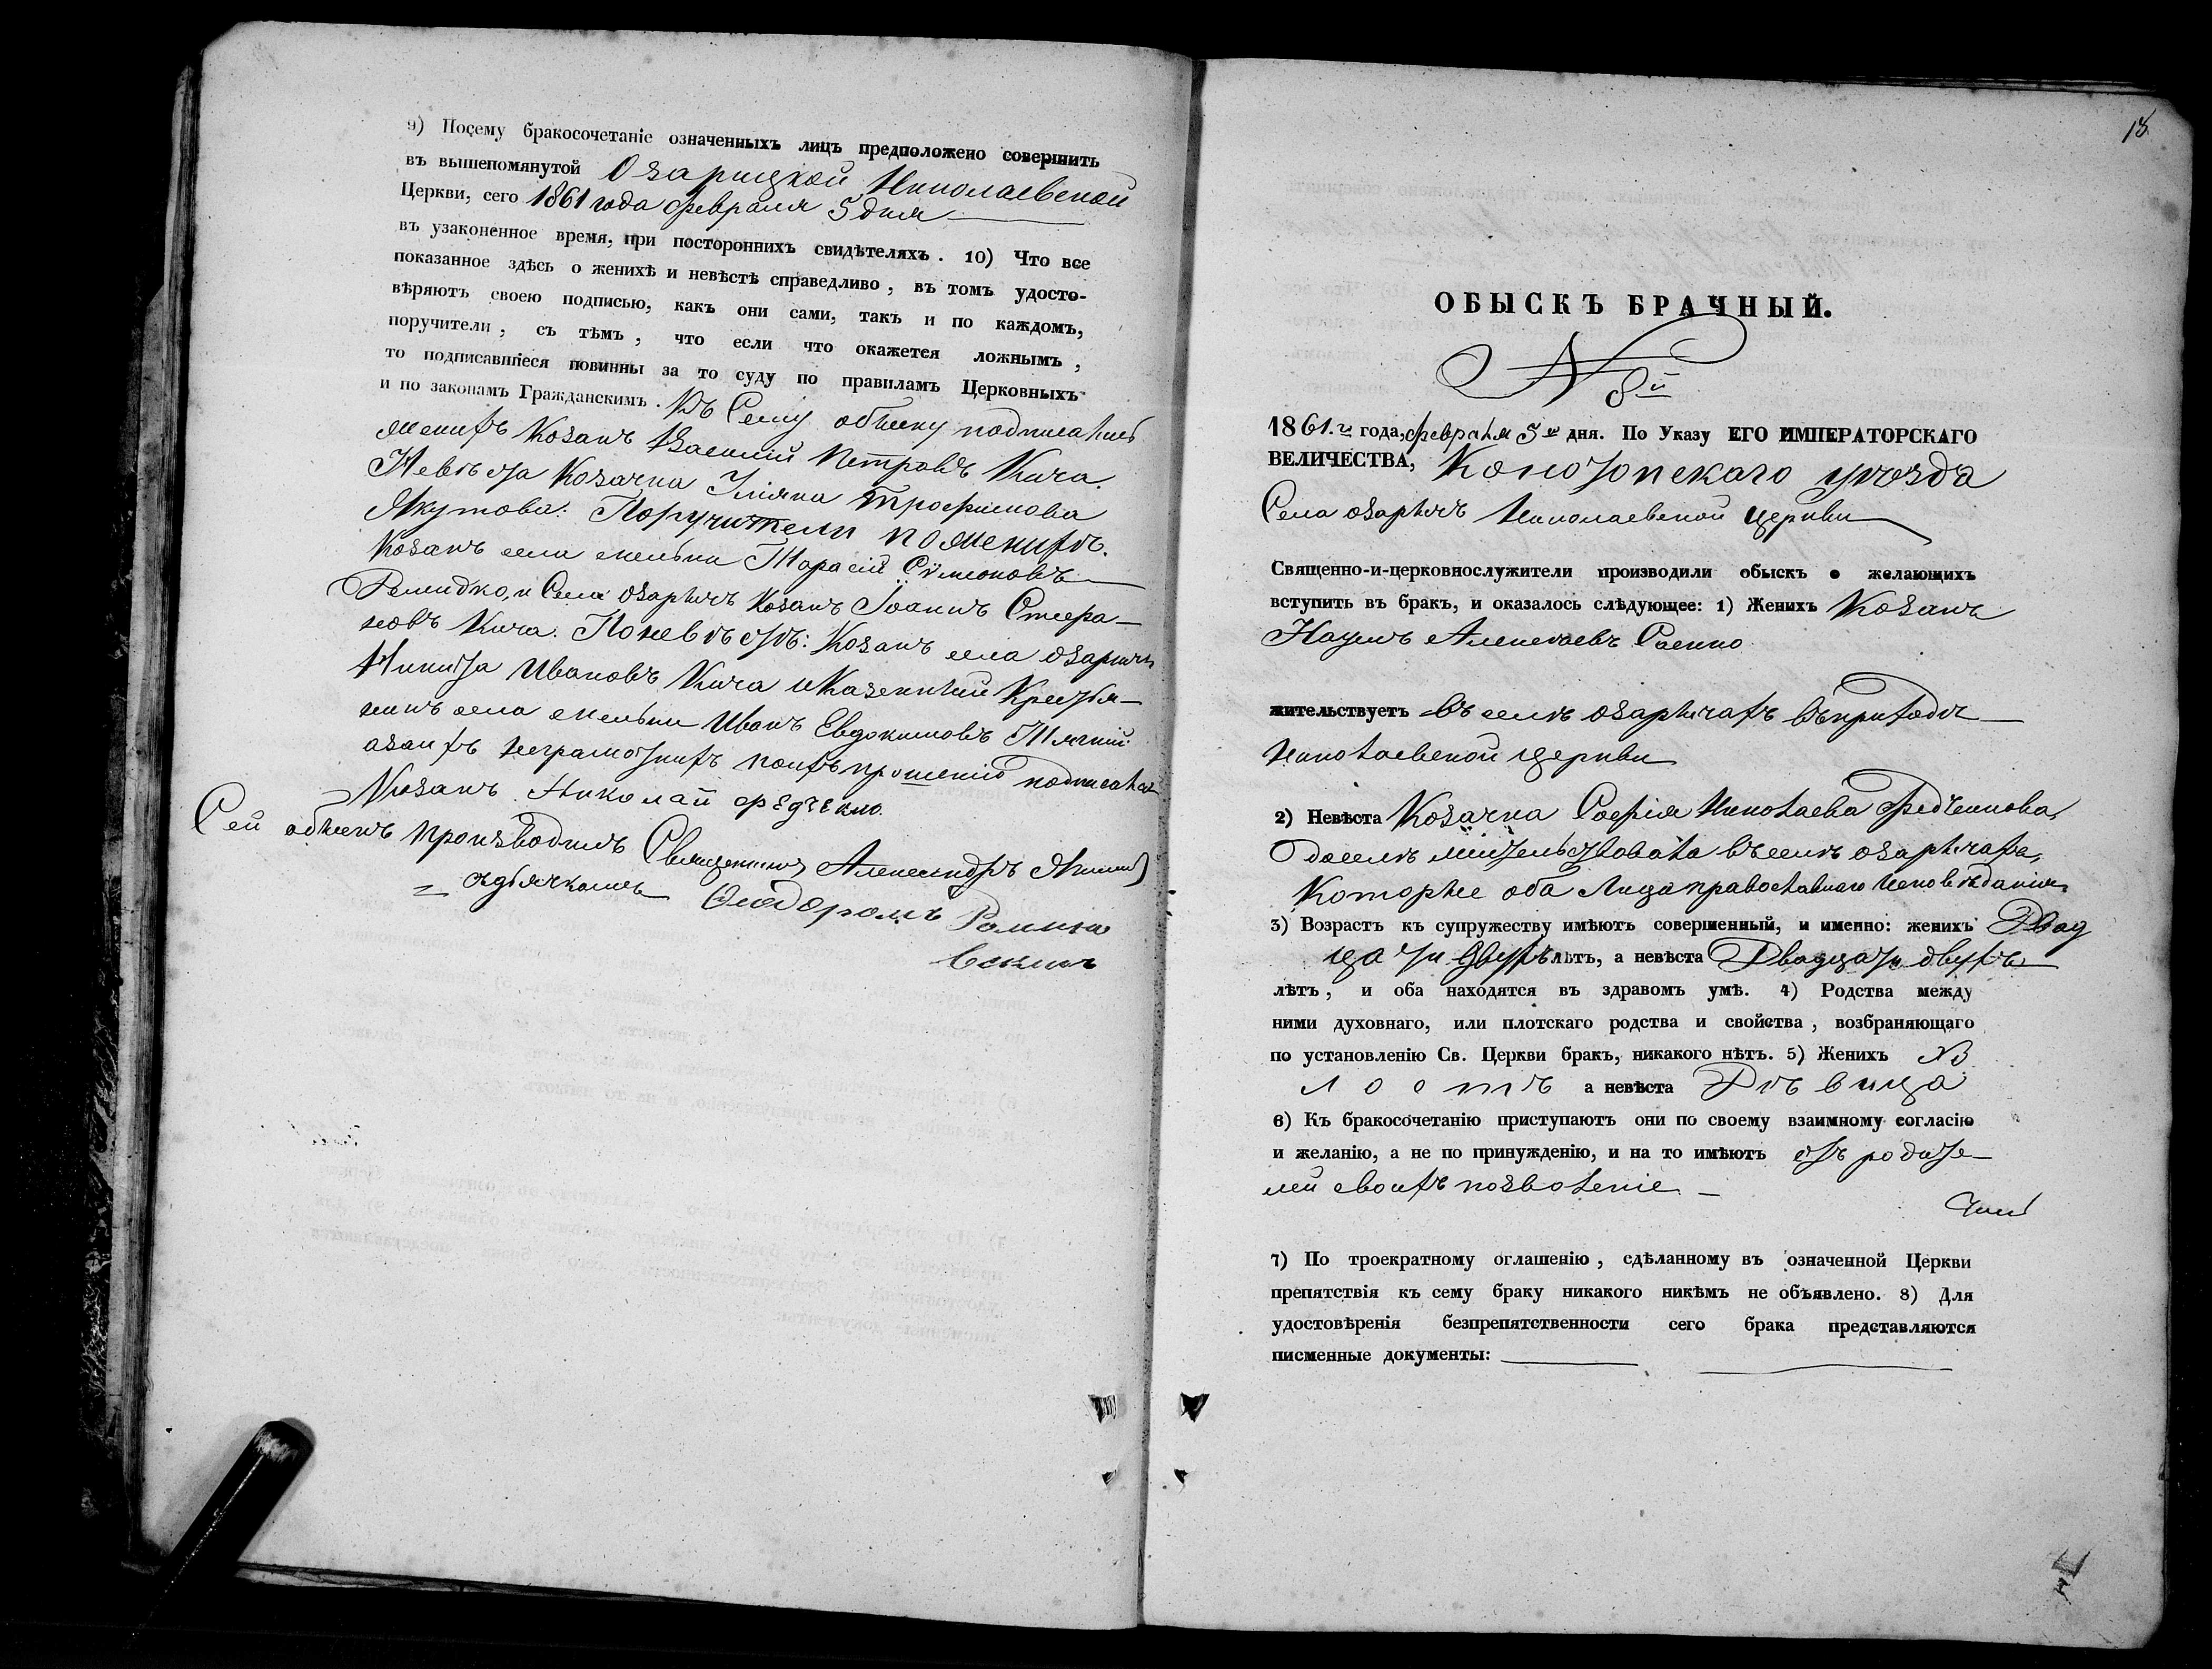 9) Посему бракосочетаніе означенныхъ лицъ предположено совершить
въ вышепомянутой Озарицкой Николаевской
Церкви, сего 1861 года февраля 5 дня
въ узаконенное время, при постороннихъ свидѣтеляхъ. 10) Что все
показанное здѣсь о женихѣ и невѣстѣ справедливо, въ томъ удосто-
вѣряютъ своею подписью, какъ они сами, такъ и по каждомъ,
поручители, съ тѣмъ, что если что окажется ложнымъ,
то подписавшіеся повинны за то суду по правиламъ Церковныхъ
и по законамъ Гражданскимъ. Къ Сему обыску подписались
женихъ Козакъ Василій Петровъ Кича.
Невѣста Козачка Уліяна Трофимова
Якутова: Поручители по женихѣ.
Козакъ села Тарасій Сѵмеоновъ
и Села озаричъ Козакъ Іоаннъ Стефа-
новъ Кича. По невѣстѣ: Козакъ села озаричъ
Никита Ивановъ Кича и Казенный Крестья-
нинъ села Иванъ Евдокимовъ
а за ихъ неграмотныхъ по ихъ прошенію подписался
Козакъ Николай Федченко.
Сей обыскъ производилъ Священникъ Александръ
съ дьячкомъ Ѳеодоромъ Ромино
вскимъ
18.
ОБЫСКЪ БРАЧНЫЙ.
N 8й
1861.го года, февраля 5го дня. По Указу ЕГО ИМПЕРАТОРСКАГО
ВЕЛИЧЕСТВА, Конотопскаго уѣзда
Села озаричъ Николаевской церкви
Священно-и-церковнослужители производили обыскъ о желающихъ
вступить въ бракъ, и оказалось слѣдующее: 1) Женихъ Козакъ
Наумъ Алексѣевъ Саенко
жительствуетъ въ селѣ озаричахъ въ приходѣ
Николаевской церкви
2) Невѣста Козачка Софія Николаева Федченкова,
доселѣ жительствовала въ селѣ озаричахъ,
Которые оба Лица православнаго исповѣданія.
3) Возрастъ къ супружеству имѣютъ совершенный, и именно: женихъ Двад
цати двухъ лѣтъ, а невѣста Двадцати двухъ
лѣтъ, и оба находятся въ здравомъ умѣ. 4) Родства между
ними духовнаго, или плотскаго родства и свойства, возбраняющаго
по установленію Св. Церкви бракъ, никакого нѣтъ. 5) Женихъ Хо
лостъ а невѣста Дѣвица
6) Къ бракосочетанію приступаютъ они по своему взаимному согласію
и желанію, а не по принужденію, и на то имѣютъ отъ родите-
лей своихъ позволеніе
7) По троекратному оглашенію, сдѣланному въ означенной Церкви
препятствія къ сему браку никакого никѣмъ не объявлено. 8) Для
удостовѣренія безпрепятственности сего брака представляются
писменные документы: